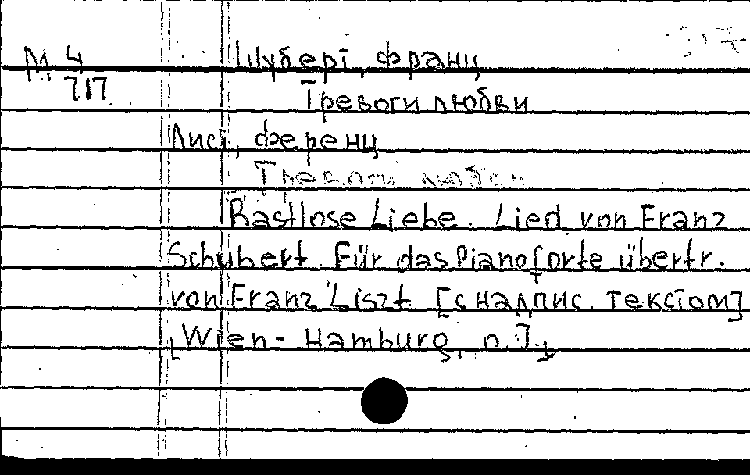 М 4
717
Шуберт, Франц
Тревоги любви
Лист, Ференц
Тревоги любви
Rastlose Liebe. Lied von Franz
Schubert. Für das Pianoforte übertr.
von Franz Liszt [с надпис. текстом]
Wien - Hamburg,